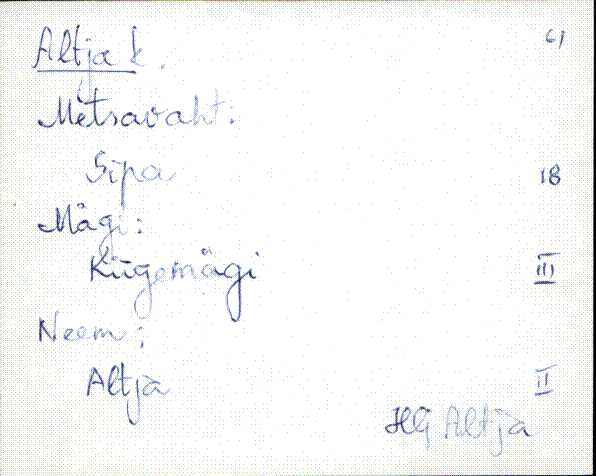 Altja k. 61
Metsavaht:
Sipa 18
Mägi:
Kiigemägi III
Neem:
Altja II
HG Altja